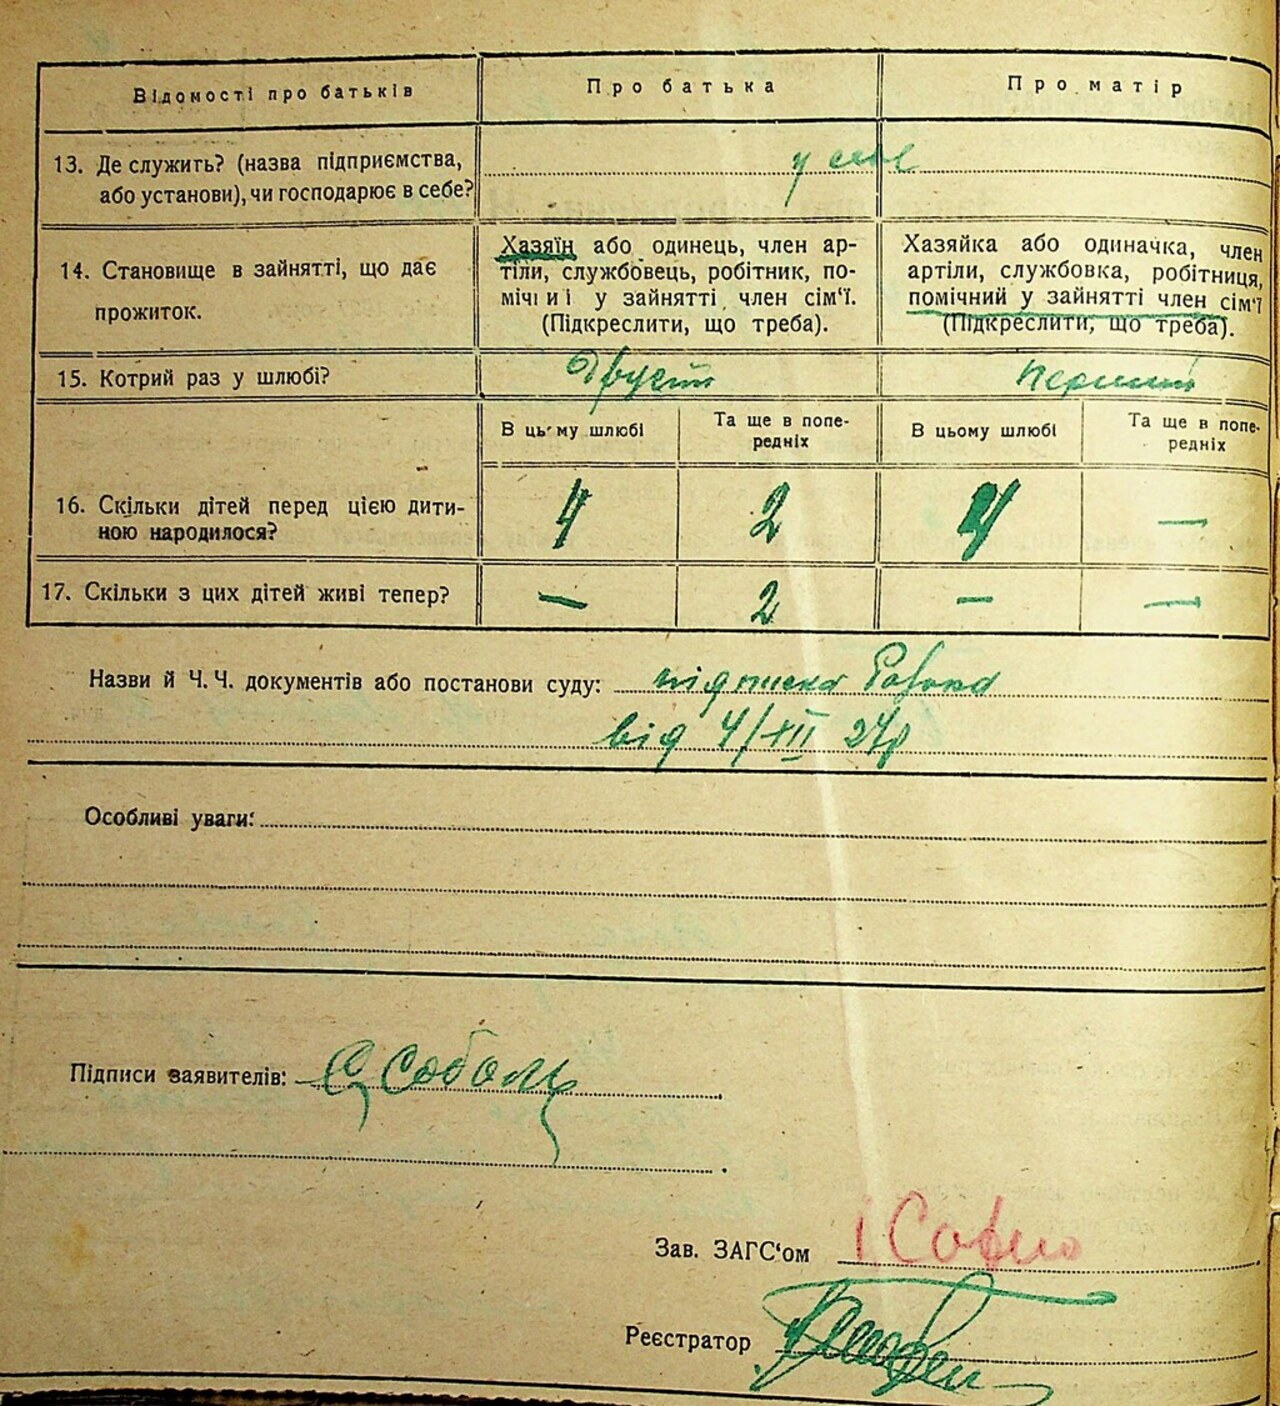 Відомості про батьків
Про батька
Про матір
13. Де служить? (назва підприємства,
або установи), чи господарює в себе?
у селі
14. Становище в зайнятті, що дає
прожиток.
Хазяїн або одинець, член ар-
тіли, службовець, робітник, по-
мічний у зайнятті член сім'ї.
(Підкреслити, що треба).
Хазяйка або одиначка, член
артіли, службовка, робітниця,
помічний у зайнятті член сім'ї
(Підкреслити, що треба).
15. Котрий раз у шлюбі?
Другий
перший
В цьому шлюбі
Та ще в попе-
редніх
В цьому шлюбі
Та ще в попе-
редніх
16. Скільки дітей перед цією дити-
ною народилося?
4
2
4
—
17. Скільки з цих дітей живі тепер?
—
2
—
—
Назви й Ч. Ч. документів або постанови суду: підписка
від 4/XII 27р
Особливі уваги:
Підписи заявителів: Соболь
Зав. ЗАГС'ом
Реєстратор